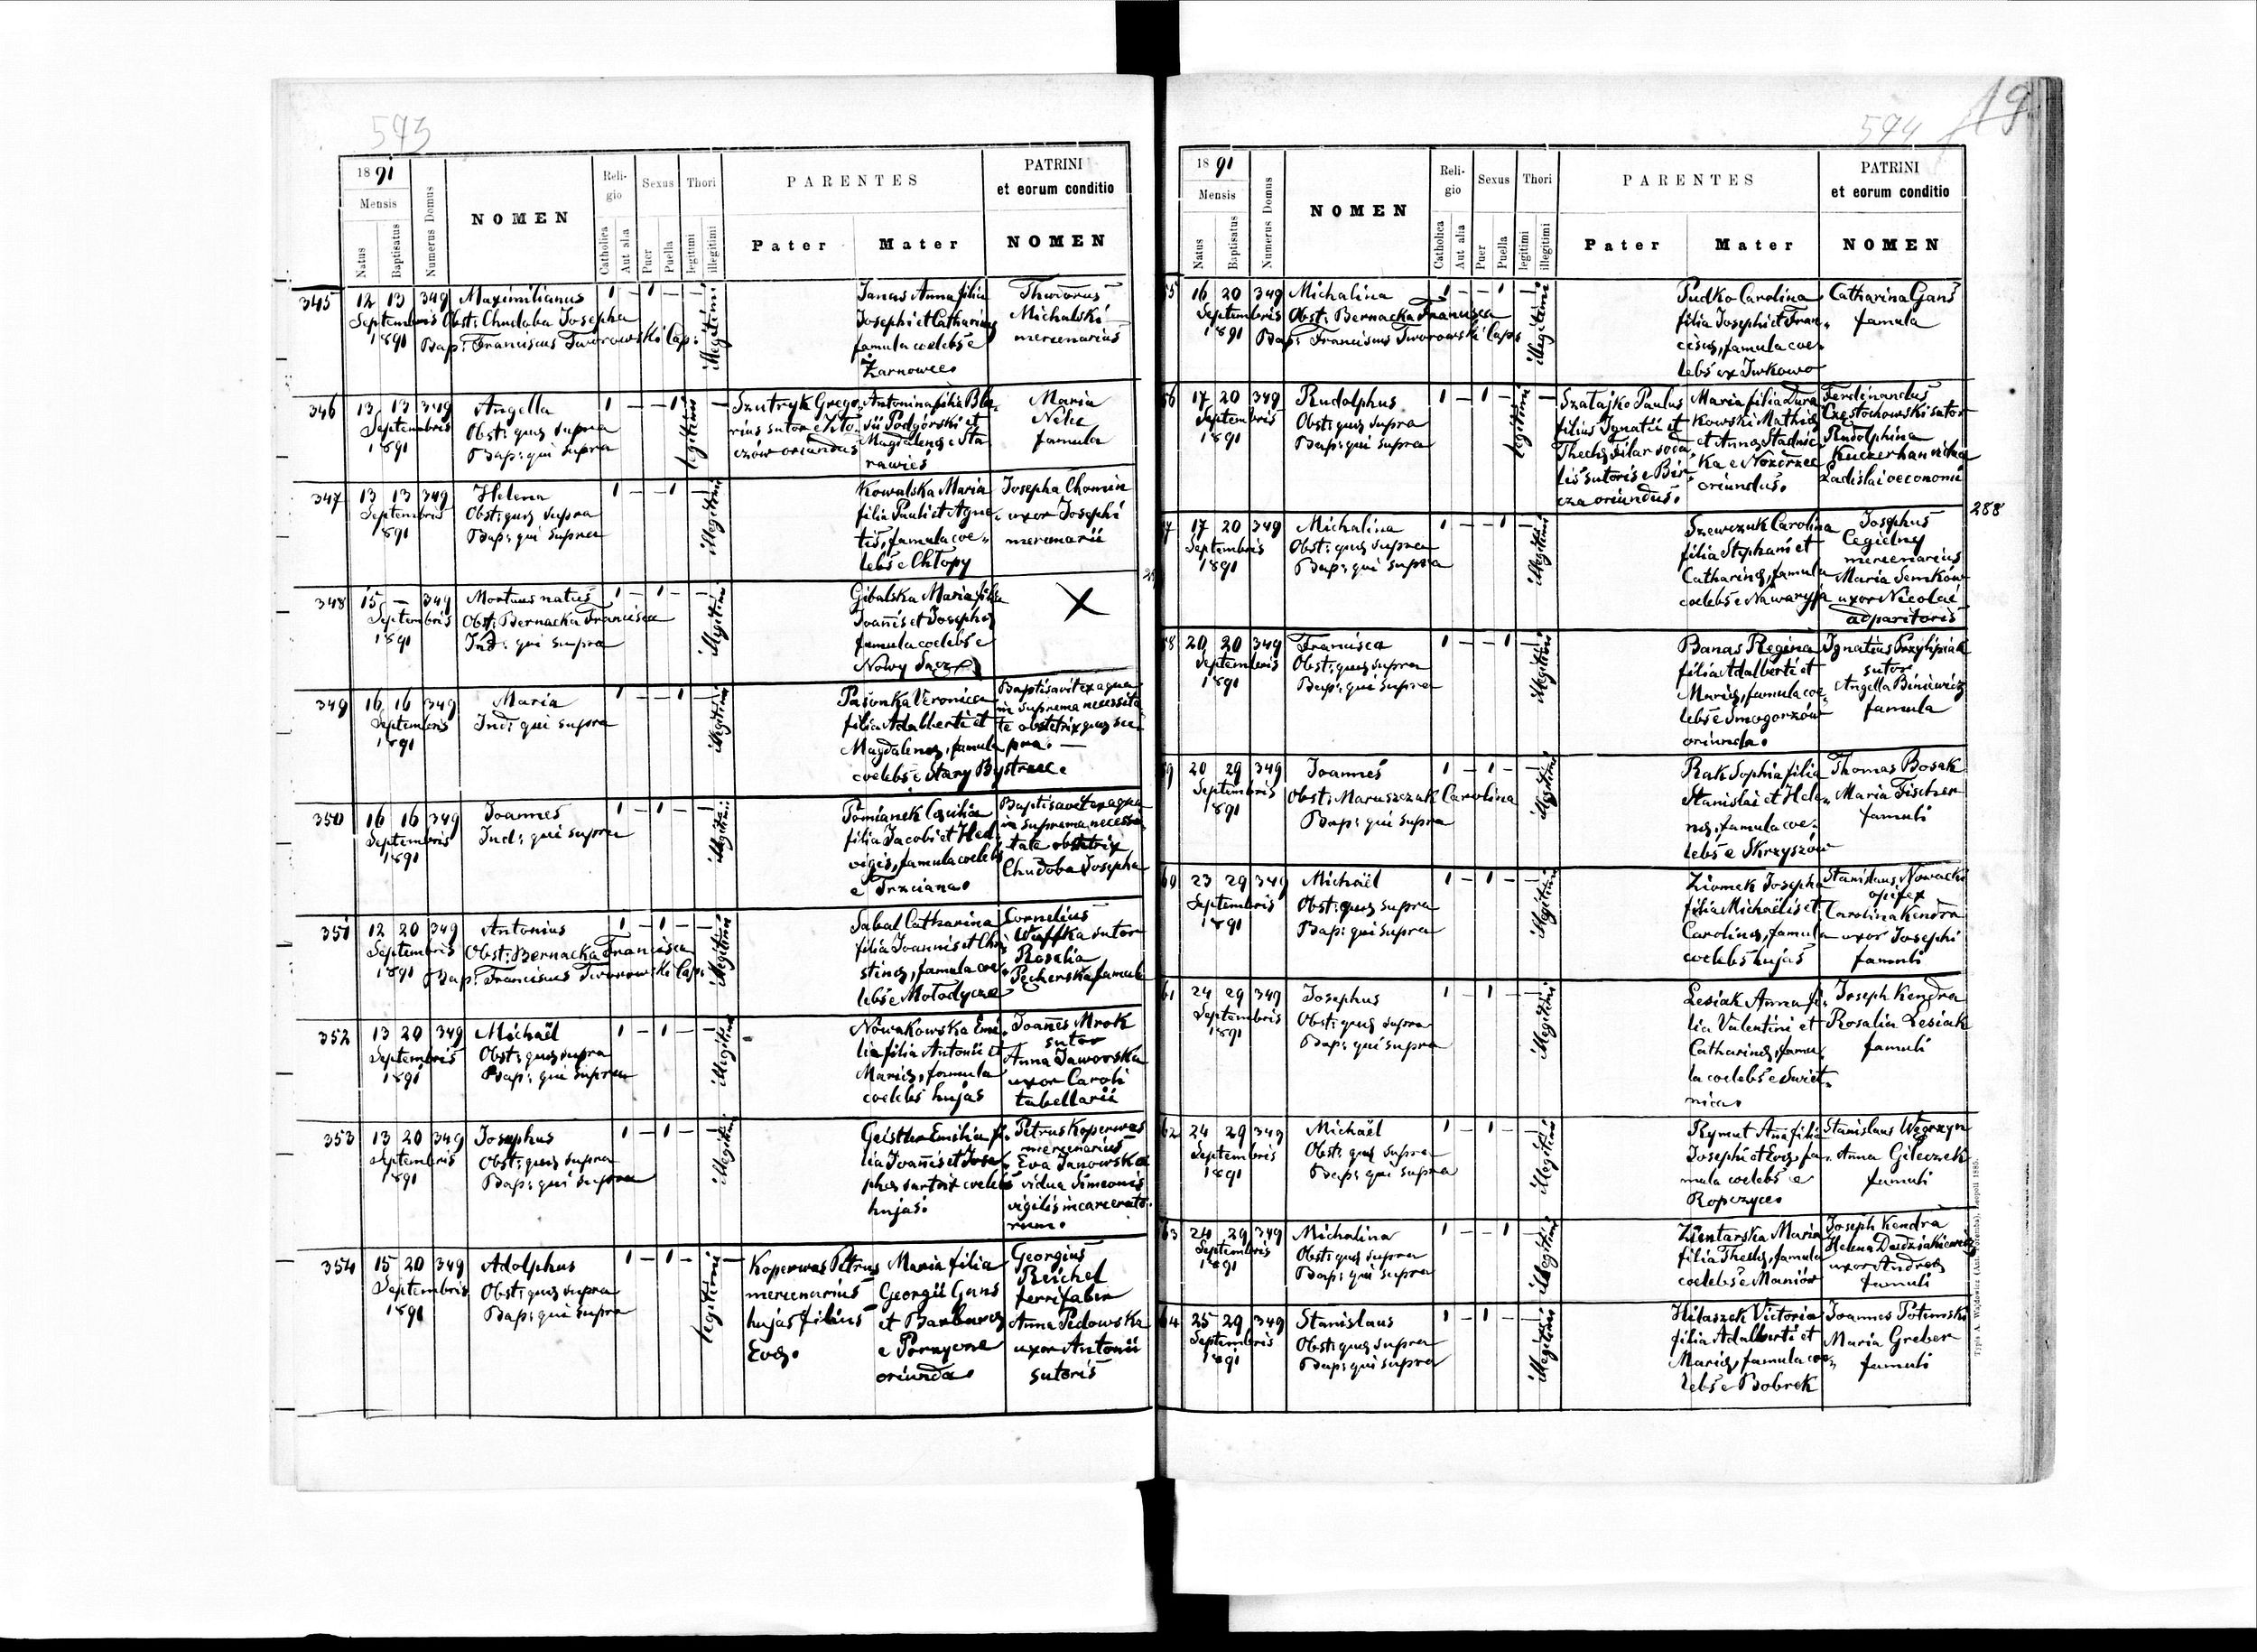 593
1891
Mensis
Natus
Baptisatus
Numerus Domus
NOMEN
Religio
Catholica
Aut alia
Sexus
Puer
Puella
Thori
legitimi
illegitimi
PARENTES
Pater
Mater
PATRINI
et eorum conditio
NOMEN
345 12 13 349 Maximilianus 1 – 1 – – illegitimi
Septembris Obst: Chudoba Josepha
1891 Bap: Franciscus Tworowski Cap:
Janas Anna filia
Josephi et Catharinę
famula coelebs e
Żarnowce
Theodorus
Michalski
mercenarius
346 13 13 349 Angella 1 – – 1 legitimi –
Septembris Obst: quę supra
1891 Bap: qui supra
Szutryk Grego-
rius sutor e
oriundus
Antonina filia Bla-
sii Podgórski et
Magdalenę e Sta
rawieś
Maria
famula
347 13 13 349 Helena 1 – – 1 – illegitimi
Septembris Obst: quę supra
1891 Bap: qui supra
Kowalska Maria
filia Pauli et Agne-
tis, famula coe-
lebs e Chłopy
Josepha Chomin
uxor Josephi
mercenarii
348 15 – 349 Mortuus natus 1 – 1 – – illegitimi
Septembris Obst: Bernacka Francisca
1891 Ind: qui supra
Gibalska Maria filia
Joannis et Josephę
famula coelebs e
Nowy Sącz
X
349 16 16 349 Maria 1 – – 1 – illegitimi
Septembris Ind: qui supra
1891
Pasonka Veronica
filia Adalberti et
Magdalenę, famula
coelebs e Stary Bystrze
Baptisavit ex aqua
in suprema necessita
te obstetrix quę su-
pra. –
350 16 16 349 Joannes 1 – 1 – – illegitimi
Septembris Ind: qui supra
1891
Pomianek Cęcilia
filia Jacobi et Hed-
vigis, famula coelebs
e Trzciana
Baptisavit ex aqua
in suprema necessi
tate obstetrix
Chudoba Josepha
351 12 20 349 Antonius 1 – 1 – – illegitimi
Septembris Obst: Bernacka Francisca
1891 Bap: Franciscus Tworowski Cap:
Sabal Catharina
filia Joannis et Chri-
stinę, famula coe-
lebs e Mołodycze
Cornelius
Waffka sutor
Rosalia
Pęcherska famula
352 13 20 349 Michaël 1 – 1 – – illegitimi
Septembris Obst: quę supra
1891 Bap: qui supra
Nowakowska Emi-
lia filia Antonii et
Marię, famula
coelebs hujas
Joannes Mrok
sutor
Anna Jaworska
uxor Caroli
tabellarii
353 13 20 349 Josephus 1 – 1 – – illegitimi
Septembris Obst: quę supra
1891 Bap: qui supra
Geistler Emilia fi-
lia Joannis et Jose-
phę sartrix coelebs
hujas.
Petrus Koperwas
mercenarius
Eva Janowska
vidua Simeonis
vigilis incarcerato-
rum.
354 15 20 349 Adolphus 1 – 1 – legitimi –
Septembris Obst: quę supra
1891 Bap: qui supra
Koperwas Petrus
mercenarius
hujas filius
Evę.
Maria filia
Georgii Gans
et Barbarę
e
oriunda
Georgius
Reichel
ferrifaber
Anna Pedowska
uxor Antonii
sutoris
594
19
1891
Mensis
Natus
Baptisatus
Numerus Domus
NOMEN
Religio
Catholica
Aut alia
Sexus
Puer
Puella
Thori
legitimi
illegitimi
PARENTES
Pater
Mater
PATRINI
et eorum conditio
NOMEN
55 16 20 349 Michalina 1 – – 1 – illegitimi
Septembris Obst: Bernacka Francisca
1891 Bap: Franciscus Tworowski Cap:
Pudko Carolina
filia Josephi et Fran-
ciscę, famula coe-
lebs ex Iwkowo
Catharina Gans
famula
56 17 20 349 Rudolphus 1 – 1 – legitimi –
Septembris Obst: quę supra
1891 Bap: qui supra
Szatajko Paulus
filius Ignatii et
Theclę Pilar soda
lis sutoris e Bir-
cza oriundus.
Maria filia Dura
kowski Mathię
et Annę Stadnic-
ka e Nozdrzec
oriundus.
Ferdinandus
Częstochowski sutor
Rudolphina
Ladislai oeconomi
288
57 17 20 349 Michalina 1 – – 1 – illegitimi
Septembris Obst: quę supra
1891 Bap: qui supra
Szewczuk Carolina
filia Stephani et
Catharinę, famula
coelebs e Nawaryja
Josephus
Cegielny
mercenarius
Maria Semków
uxor Nicolai
adparitoris
58 20 20 349 Francisca 1 – – 1 – illegitimi
Septembris Obst: quę supra
1891 Bap: qui supra
Banas Regina
filia Adalberti et
Marię, famula coe-
lebs e Smogorzów
oriunda.
Ignatius Przylipiak
sutor
Angella Biniewicz
famula
59 20 29 349 Joannes 1 – 1 – – illegitimi
Septembris Obst: Maruszczak Carolina
1891 Bap: qui supra
Rak Sophia filia
Stanislai et Hele-
nę, famula coe-
lebs e Skrzyszów
Thomas Bosak
Maria Fischer
famuli
60 23 29 349 Michaël 1 – 1 – – illegitimi
Septembris Obst: quę supra
1891 Bap: qui supra
Ziomek Josepha
filia Michaëlis et
Carolinę, famula
coelebs hujas
Stanislaus Nowacki
opifex
Carolina Kendra
uxor Josephi
famuli
61 24 29 349 Josephus 1 – 1 – – illegitimi
Septembris Obst: quę supra
1891 Bap: qui supra
Lesiak Anna fi-
lia Valentini et
Catharinę, famu-
la coelebs e Swiet-
nica
Joseph Kendra
Rosalia Lesiak
famuli
62 24 29 349 Michaël 1 – 1 – – illegitimi
Septembris Obst: quę supra
1891 Bap: qui supra
Rymut Anna filia
Josephi et Evę, fa-
mula coelebs e
Ropczyce
Stanislaus Węgrzyn
Anna Gileczek
famuli
63 24 29 349 Michalina 1 – – 1 – illegitimi
Septembris Obst: quę supra
1891 Bap: qui supra
Zientarska Maria
filia Theclę, famula
coelebs e Maniów
Joseph Kendra
Helena
uxor Andreę
famuli
64 25 29 349 Stanislaus 1 – 1 – – illegitimi
Septembris Obst: quę supra
1891 Bap: qui supra
Hilaszek Victoria
filia Adalberti et
Marię, famula coe-
lebs e Bobrek
Joannes Potinoski
Maria Greber
famuli